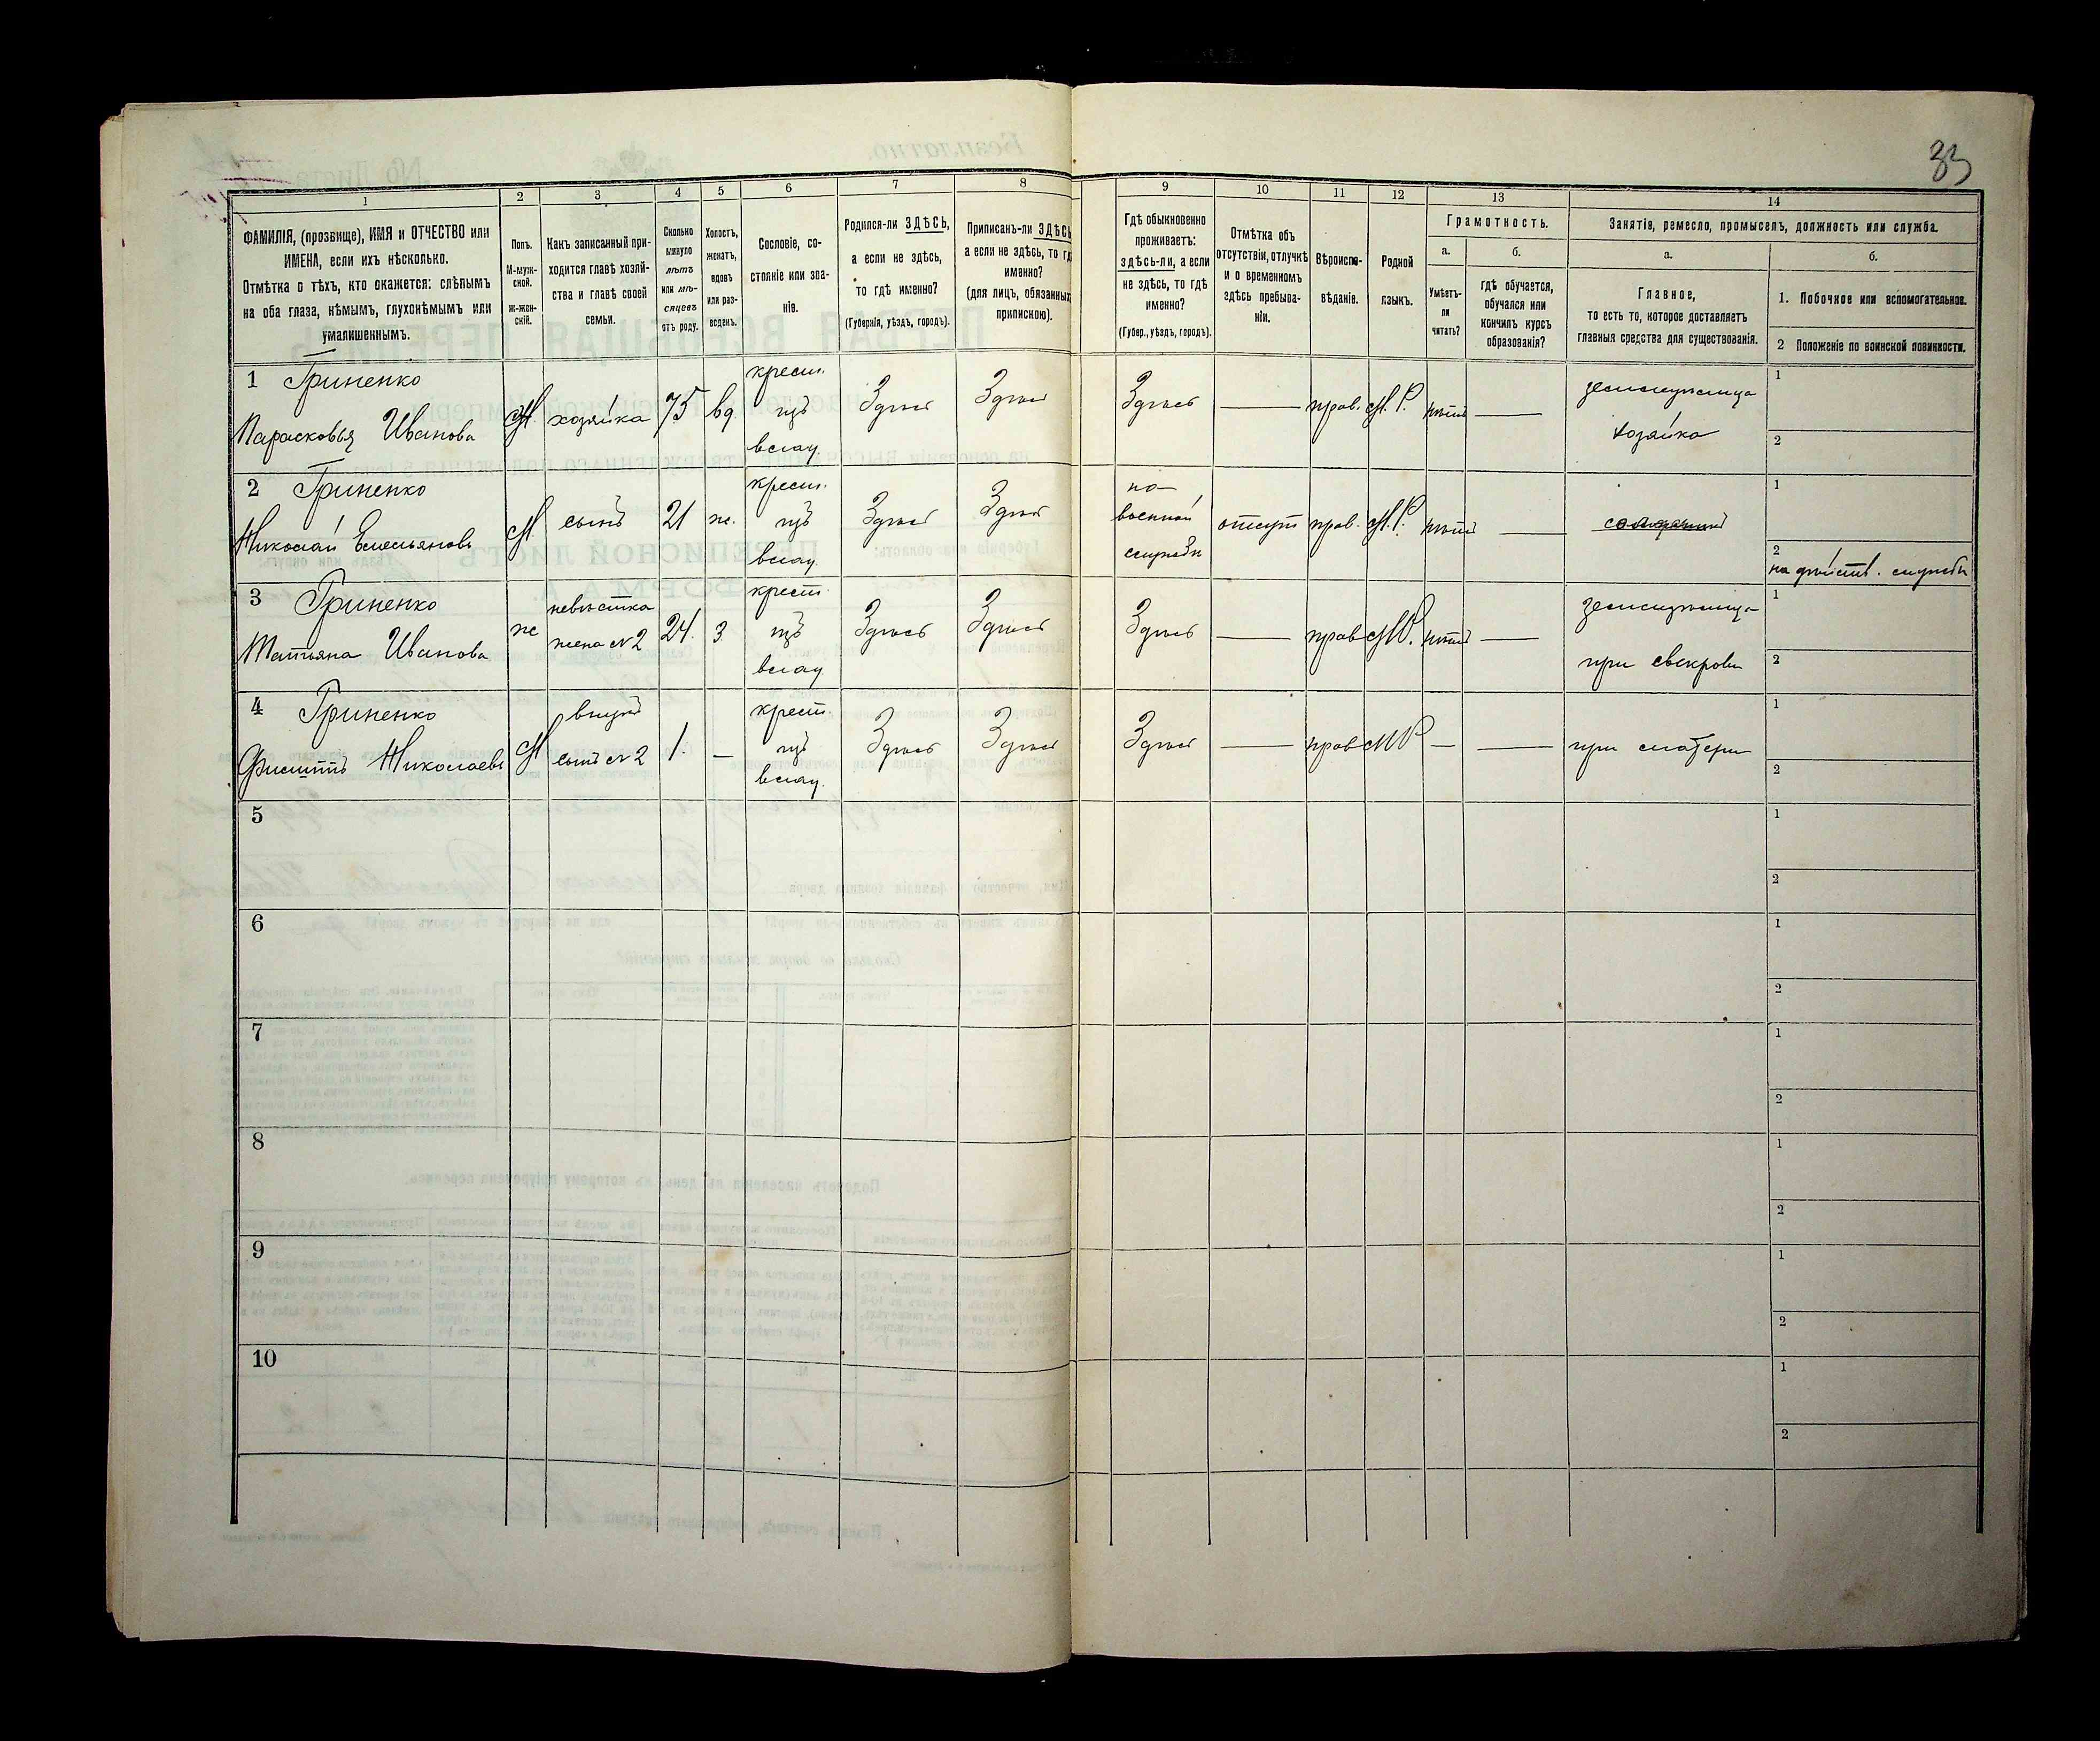 33
1
2
3
4
5
6
7
8
9
10
11
12
13
14
ФАМИЛІЯ, (прозвище), ИМЯ и ОТЧЕСТВО или
ИМЕНА, если ихъ нѣсколько.
Отмѣтка о тѣхъ, кто окажется: слѣпымъ
на оба глаза, нѣмымъ, глухонѣмымъ или
умалишеннымъ.
Полъ.
М-муж-
ской.
ж-жен-
скій.
Какъ записанный при-
ходится главѣ хозяй-
ства и главѣ своей
семьи.
Сколько
минуло
лѣтъ
или мѣ-
сяцевъ
отъ роду.
Холостъ,
женатъ,
вдовъ
или раз-
веденъ.
Сословіе, со-
стояніе или зва-
ніе.
Родился-ли ЗДѢСЬ,
а если не здѣсь,
то гдѣ именно?
(Губернія, уѣздъ, городъ).
Приписанъ-ли ЗДѢСЬ
а если не здѣсь, то гд
именно?
(для лицъ, обязанных
припискою).
Гдѣ обыкновенно
проживаетъ:
здѣсь-ли, а если
не здѣсь, то гдѣ
именно?
(Губер., уѣздъ, городъ).
Отмѣтка объ
отсутствіи, отлучкѣ
и о временномъ
здѣсь пребыва-
ніи.
Вѣроиспо-
вѣданіе.
Родной
языкъ.
Грамотность.
а.
Умѣетъ-
ли
читать?
б.
гдѣ обучается,
обучался или
кончилъ курсъ
образованія?
Занятія, ремесло, промыселъ, должность или служба.
а.
Главное,
то есть то, которое доставляетъ
главныя средства для существованія.
б.
1. Побочное или вспомогательное.
2 Положеніе по воинской повинности.
1 Гриненко
Парасковья Иванова
хозяйка
75
вд.
крест.
изъ
влад.
Здѣсь
Здѣсь
Здѣсь
прав.
М.Р.
нѣтъ
хозяйка
1
2
2 Гриненко
Николай Емельяновъ
М.
сынъ
21
ж.
крест.
изъ
влад.
Здѣсь
Здѣсь
на
военной
службѣ
отсут
прав.
М.Р.
нѣтъ
1
2
на дѣйств. службѣ
3 Гриненко
Татьяна Иванова
ж
невѣстка
жена №2
24.
З
крест.
изъ
влад
Здѣсь
Здѣсь
Здѣсь
прав
МР.
нѣтъ
при свекрови
1
2
4 Гриненко
Филиппъ Николаевъ
М
внукъ
сынъ №2
1.
—
крест.
изъ
влад.
Здѣсь
Здѣсь
Здѣсь
прав
МР
—
при матери
1
2
5
1
2
6
1
2
7
1
2
8
1
2
9
1
2
10
1
2